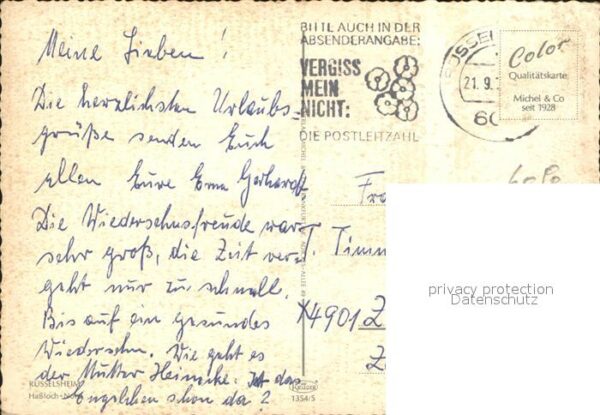 Meine Lieben!
Die herzlichsten Urlaubs-
grüße senden Euch
allen Eure Erna Gerhardt
Die Wiedersehnsfreude war
sehr groß, die Zeit ver-
geht nur zu schnell.
Bis auf ein gesundes
Wiedersehn. Wie geht es
der Mutter Heinecke. Ist das
Engelchen schon da?
RÜSSELSHEIM
Haßloch-Nord
BITTE AUCH IN DER
ABSENDERANGABE:
VERGISS
MEIN
NICHT:
DIE POSTLEITZAHL
21.9.
60
Color
Qualitätskarte
Michel & Co
seit 1928
Fra
T. Timm
4901 Z
Z
privacy protection
Datenschutz
1354/5